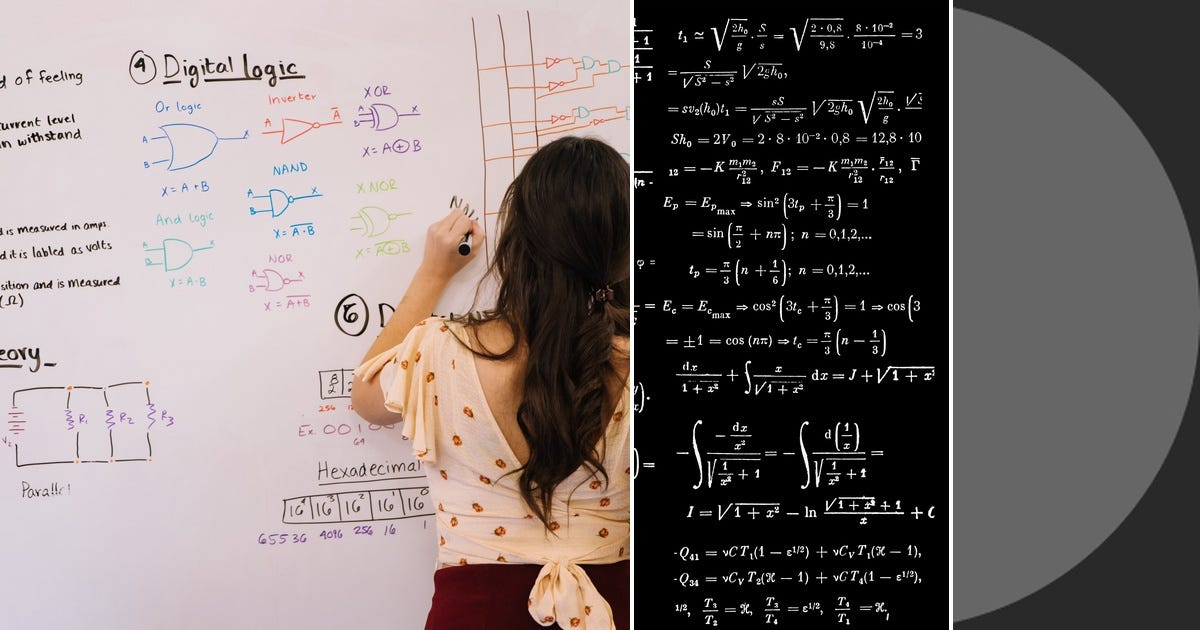 d of feeling
current level
in withstand
d is measured in amps.
d it is labled as volts
sition and is measured
(Ω)
eory
V₂
R₁
R₂
R₃
Parallel
④ Digital logic
Or logic
A
B
X
X = A + B
Inverter
A
A̅
XOR
A
B
X
X = A ⊕ B
NAND
A
B
X
X = \overline{A·B}
X NOR
X = \overline{A⊕B}
And logic
A
B
X
X = A·B
NOR
A
B
X = \overline{A+B}
⑤ D
Ex. 001
256
64
Hexadecimal
16⁴ 16³ 16² 16¹ 16⁰
65536 4096 256 16 1
t₁ ≃ √(2h₀/g) · S/s = √(2·0,8/9,8) · 8·10⁻²/10⁻⁴ = 3
= S/√(S² − s²) √(2gh₀),
= sv₂(h₀)t₁ = sS/√(S² − s²) √(2gh₀) √(2h₀/g) ·
Sh₀ = 2V₀ = 2 · 8 · 10⁻² · 0,8 = 12,8 · 10
₁₂ = −K m₁m₂/r²₁₂, F₁₂ = −K m₁m₂/r²₁₂ · r̅₁₂/r₁₂, Γ̅
E_p = E_{p max} ⇒ sin²(3t_p + π/3) = 1
= sin(π/2 + nπ); n = 0,1,2,...
φ =
t_p = π/3 (n + 1/6); n = 0,1,2,...
= E_c = E_{c max} ⇒ cos²(3t_c + π/3) = 1 ⇒ cos(3
= ±1 = cos (nπ) ⇒ t_c = π/3 (n − 1/3)
dx/(1 + x²) + ∫ x/√(1 + x²) dx = J + √(1 + x²
−∫ (−dx/x²)/√(1/x² + 1) = −∫ d(1/x)/√(1/x² + 1) =
I = √(1 + x²) − ln (√(1 + x²) + 1)/x + C
-Q₄₁ = νCT₁(1 − ε^{1/2}) + νC_V T₁(ℋ − 1),
-Q₃₄ = νC_V T₂(ℋ − 1) + νCT₄(1 − ε^{1/2}),
^{1/2}, T₃/T₂ = ℋ, T₃/T₄ = ε^{1/2}, T₄/T₁ = ℋ,